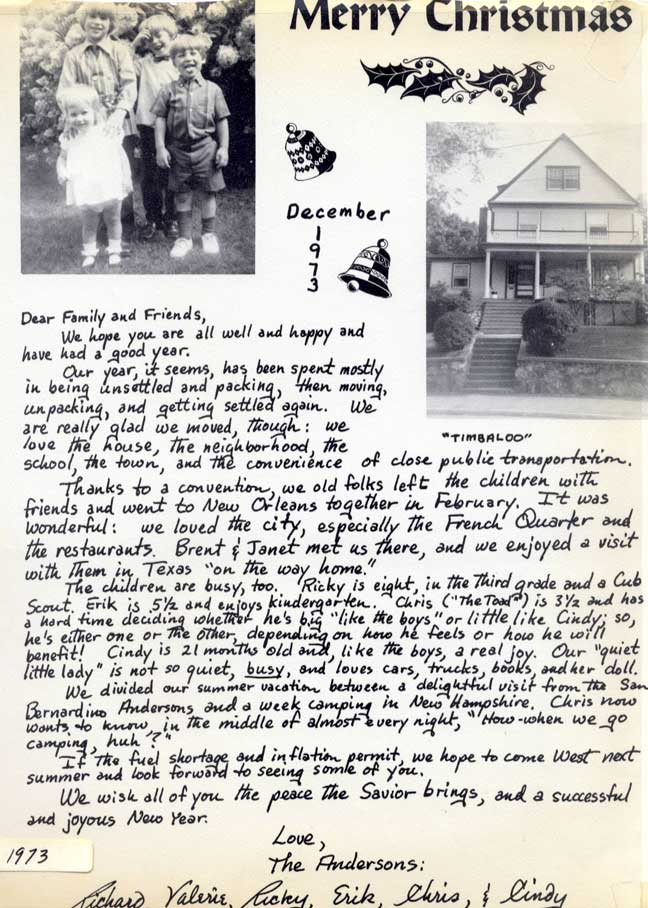 Merry Christmas
December
1
9
7
3
Dear Family and Friends,
We hope you are all well and happy and
have had a good year.
Our year, it seems, has been spent mostly
in being unsettled and packing, then moving,
unpacking, and getting settled again. We
are really glad we moved, though: we
love the house, the neighborhood, the
"TIMBALOO"
school, the town, and the convenience of close public transportation.
Thanks to a convention, we old folks left the children with
friends and went to New Orleans together in February. It was
wonderful: we loved the city, especially the French Quarter and
the restaurants. Brent & Janet met us there, and we enjoyed a visit
with them in Texas "on the way home."
The children are busy, too. Ricky is eight, in the third grade and a Cub
Scout. Erik is 5½ and enjoys kindergarten. Chris ("The Toad") is 3½ and has
a hard time deciding whether he's big "like the boys" or little like Cindy; so,
he's either one or the other, depending on how he feels or how he will
benefit! Cindy is 21 months old and, like the boys, a real joy. Our "quiet
little lady" is not so quiet, busy, and loves cars, trucks, books, and her doll.
We divided our summer vacation between a delightful visit from the San
Bernardino Andersons and a week camping in New Hampshire. Chris now
wants to know, in the middle of almost every night, "How-when we go
camping, huh?"
If the fuel shortage and inflation permit, we hope to come West next
summer and look forward to seeing some of you.
We wish all of you the peace the Savior brings, and a successful
and joyous New Year.
Love,
The Andersons:
1973
Richard Valerie, Ricky, Erik, Chris, & Cindy